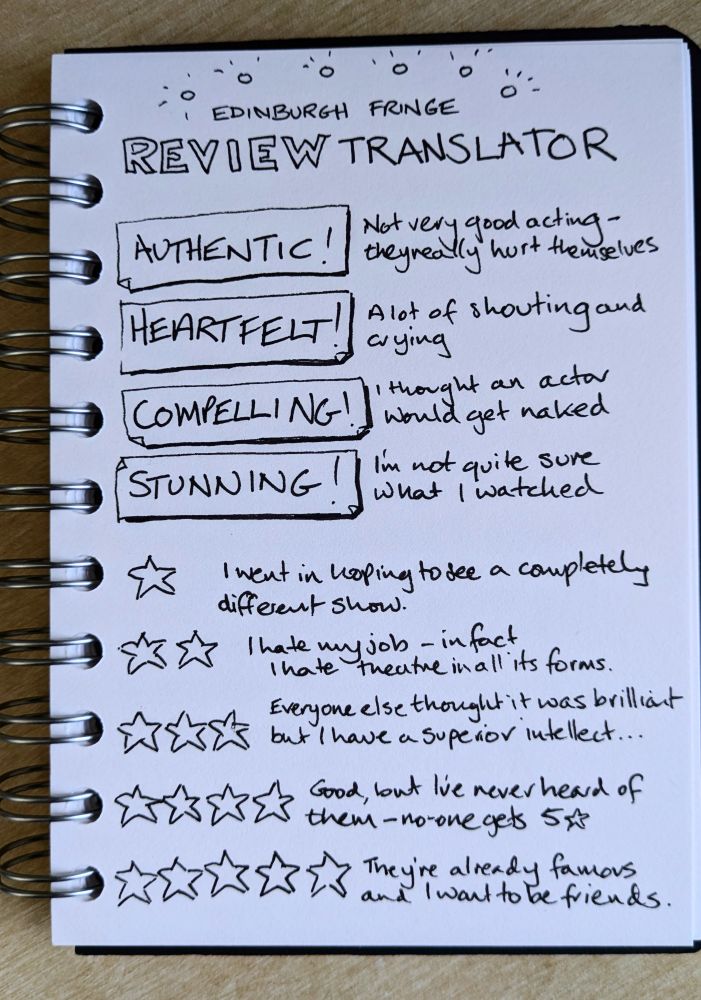 EDINBURGH FRINGE
REVIEW TRANSLATOR
AUTHENTIC!
Not very good acting -
they really hurt themselves
HEARTFELT!
A lot of shouting and
crying
COMPELLING!
I thought an actor
would get naked
STUNNING!
I'm not quite sure
what I watched
☆ I went in hoping to see a completely
different show.
☆☆ I hate my job - in fact
I hate theatre in all its forms.
☆☆☆ Everyone else thought it was brilliant
but I have a superior intellect...
☆☆☆☆ Good, but I've never heard of
them - no-one gets 5☆
☆☆☆☆☆ They're already famous
and I want to be friends.